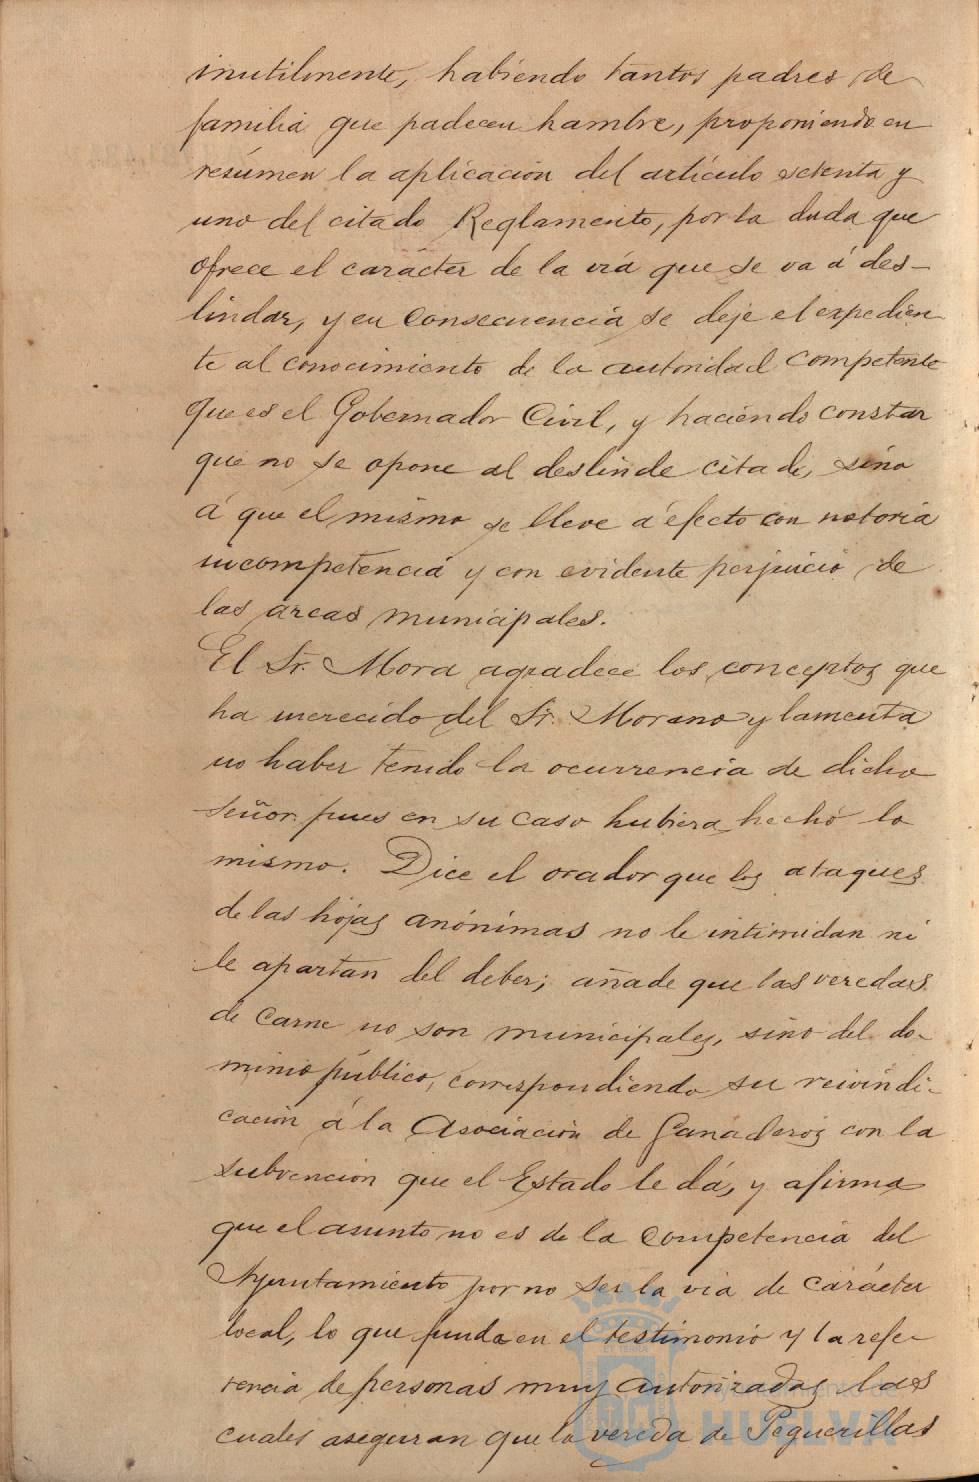 inutilmente, habiendo tantos padres de
familia que padecen hambre, proponiendo en
resúmen la aplicacion del artículo setenta y
uno del citado Reglamento, por la duda que
ofrece el carácter de la via que se va á des-
lindar, y en consecuencia se deje el expedien
te al conocimiento de la autoridad competente
que es el Gobernador Civil, y haciendo constar
que no se opone al deslinde citado, sino
á que el mismo se lleve á efecto con notoria
incompetencia y con evidente perjuicio de
las arcas municipales.
El Sr. Mora agradece los conceptos que
ha merecido del Sr. Morano y lamenta
no haber tenido la ocurrencia de dicho
señor pues en su caso hubiera hecho lo
mismo. Dice el orador que los ataques
de las hojas anónimas no le intimidan ni
le apartan del deber; añade que las veredas
de carne no son municipales, sino del do-
minio público, correspondiendo su reivindi-
cación á la Asociación de Ganaderos con la
subvención que el Estado le dá, y afirma
que el asunto no es de la competencia del
Ayuntamiento por no ser la via de carácter
local, lo que funda en el testimonio y la refe-
rencia de personas muy autorizadas las
cuales aseguran que la vereda de Peguerillas
Ayuntamiento de
HUELVA